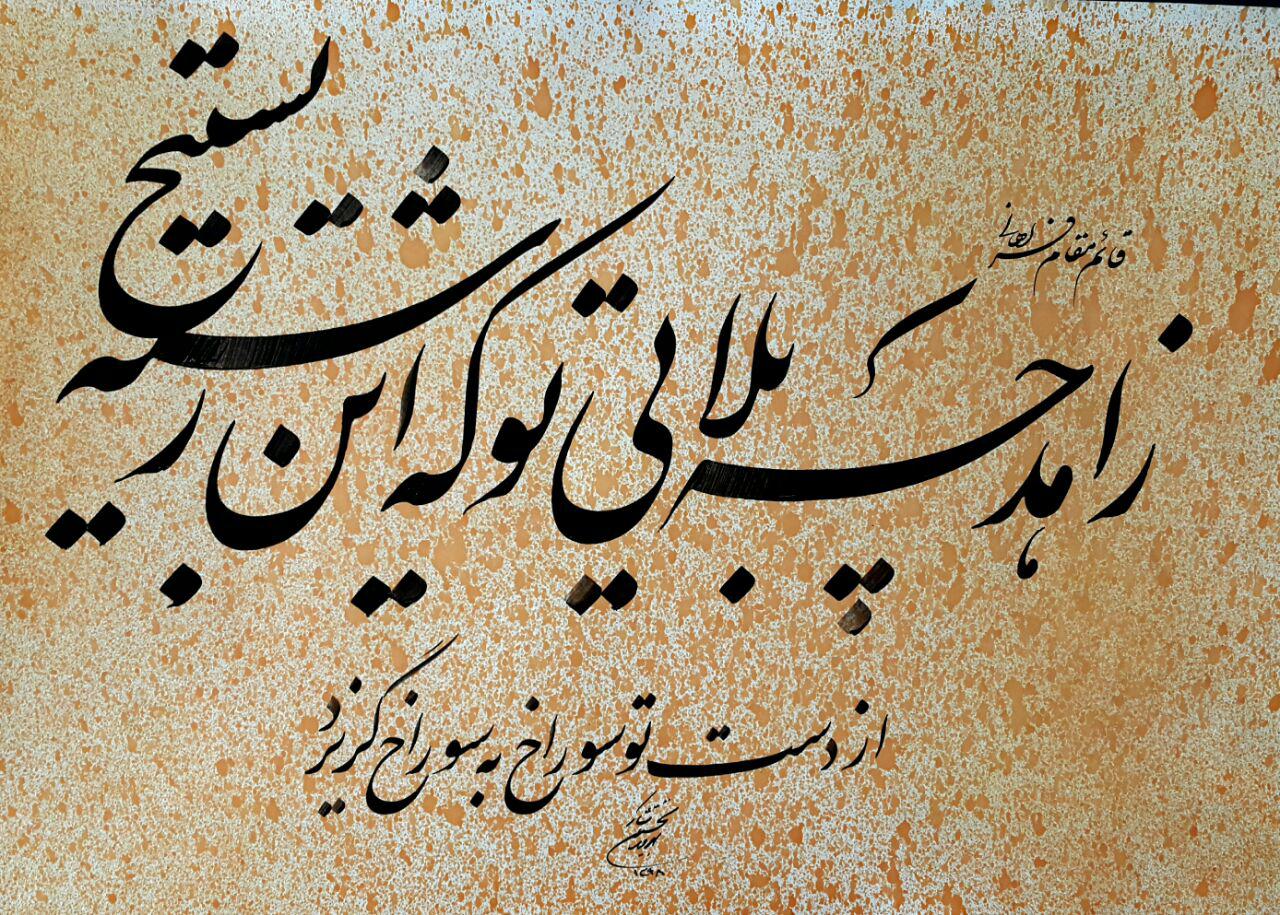 قائم مقام فراهانی
زاهد چه بلائی تو که این رشته تسبیح
از دست تو سوراخ به سوراخ گریزد
۱۳۹۸